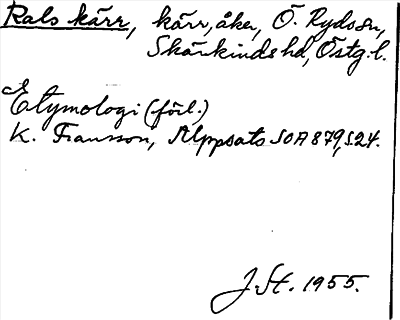 Rals kärr, kärr, åker, Ö. Ryds sn,
Skärkinds hd, Östg. l.
Etymologi (förl.)
K. Fransson, Uppsats SOA 879, s. 24.
J. St. 1955.